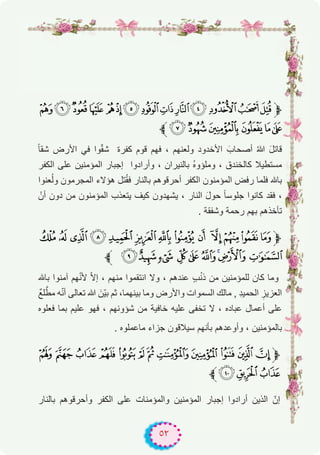 ﴿ قُتِلَ أَصْحَابُ الْأُخْدُودِ ٤ النَّارِ ذَاتِ الْوَقُودِ ٥ إِذْ هُمْ عَلَيْهَا قُعُودٌ ٦ وَهُمْ
عَلَىٰ مَا يَفْعَلُونَ بِالْمُؤْمِنِينَ شُهُودٌ ٧ ﴾
قاتلَ اللهُ أصحابَ الأخدود ولعنهم ، فهم قوم كفرة شقّوا في الأرض شقاً
مستطيلا كالخندق ، وملؤوهُ بالنيران ، وأرادوا إجبار المؤمنين على الكفر
بالله فلما رفض المؤمنون الكفر أحرقوهم بالنار فقُتل هؤلاء المجرمون ولُعنوا
، فقد كانوا جلوساً حولَ النار ، يشهدون كيف يتعذب المؤمنون من دون أنْ
تأخذهم بهم رحمة وشفقة .
﴿ وَمَا نَقَمُوا مِنْهُمْ إِلَّا أَن يُؤْمِنُوا بِاللَّهِ الْعَزِيزِ الْحَمِيدِ ٨ الَّذِي لَهُ مُلْكُ
السَّمَاوَاتِ وَالْأَرْضِ وَاللَّهُ عَلَىٰ كُلِّ شَيْءٍ شَهِيدٌ ٩ ﴾
وما كان للمؤمنين من ذَنْبٍ عندهم ، ولا انتقموا منهم ، إلاّ لأنّهم آمنوا بالله
العزيزِ الحميدِ , مالك السموات والأرض وما بينهما، ثم بَيْنَ الله تعالى أنّه مطّلعٌ
على أعمال عباده ، لا تخفى عليه خافية من شؤونهم ، فهو عليم بما فعلوه
بالمؤمنين ، وأوعدهم بأنهم سيلاقون جزاء ماعملوه .
﴿ إِنَّ الَّذِينَ فَتَنُوا الْمُؤْمِنِينَ وَالْمُؤْمِنَاتِ ثُمَّ لَمْ يَتُوبُوا فَلَهُمْ عَذَابُ جَهَنَّمَ وَلَهُمْ
عَذَابُ الْحَرِيقِ ١٠ ﴾
إنّ الذين أرادوا إجبار المؤمنين والمؤمنات على الكفر وأحرقوهم بالنار
٥٢